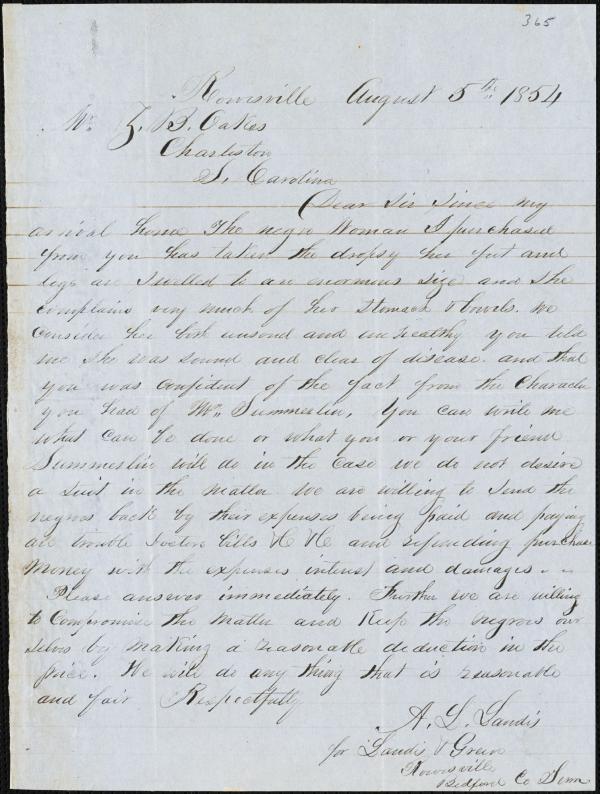 365
Rowesville August 5th 1854
Mr. Z. B. Oakes
Charleston
S. Carolina
Dear Sir Since my
arrival home the negro Woman I purchased
from you has taken the dropsy her feet and
legs are Swelled to an enormous size and she
complains very much of her Stomach & bowels. We
consider her both unsond and unhealthy you told
me she was sound and clear of disease. and that
you was confident of the fact from the Character
you had of Mr. Summerlin, You can write me
what can be done or what you or your friend
Summerlin will do in the case we do not desire
a Suit in the matter We are willing to Send the
negros back by their expenses being paid and paying
all trouble Doctor bills &C &C and refunding purchase
money with the expenses interest and damages. - -
Please answer immediately. Further we are willing
to Compromise the matter and Keep the negros our
selvs by making a reasonable deduction in the
price. We will do any thing that is reasonable
and fair Respectfully
A. L. Landis
for Landis & Green
Rowesville
Bedford Co Tenn